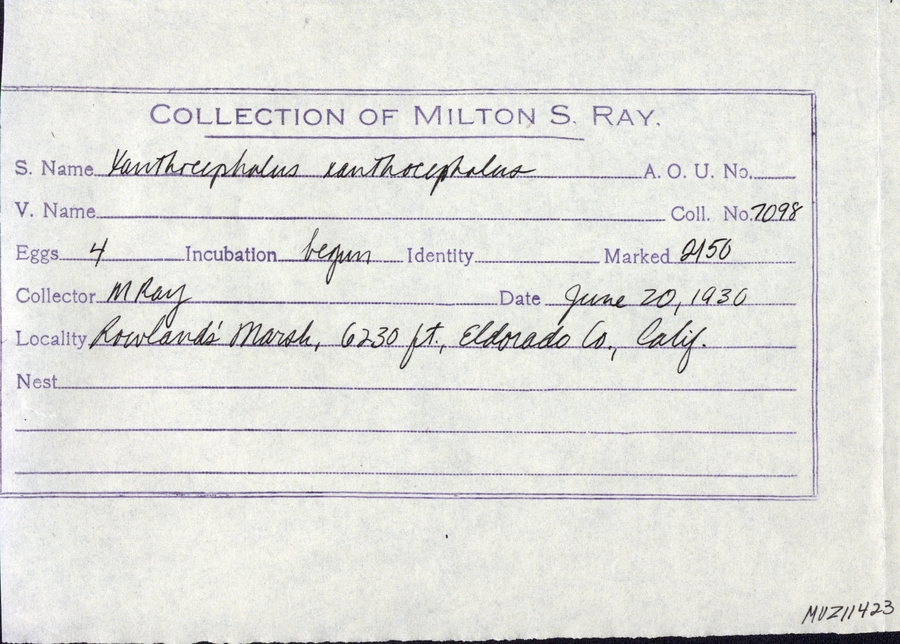 COLLECTION OF MILTON S. RAY.
S. Name Xanthocephalus xanthocephalus A. O. U. No.
V. Name Coll. No. 7098
Eggs 4 Incubation begun Identity Marked 2150
Collector M Ray Date June 20, 1930
Locality Rowland's Marsh, 6230 ft., Eldorado Co., Calif.
Nest
MVZ11423